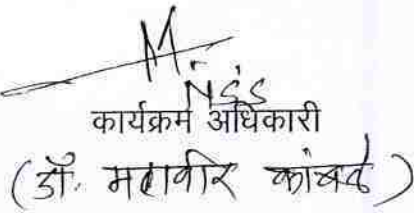 NSS
कार्यक्रम अधिकारी
(डॉ. महावीर कांबळे)